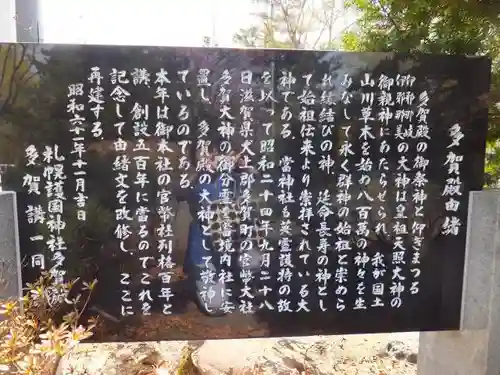 多賀殿由緒
多賀殿の御祭神と仰ぎまつる
伊邪那岐
伊邪那美の大神は皇祖天照大神の
御親神にあたらせられ、我が国土
山川草木を始め八百萬の神々を生
みなして永く群神の始祖と崇めら
れ縁結びの神、延命長寿の神とし
て始祖伝来より崇拝されている大
神である。当神社る英霊護持の故
を以って昭和二十四年九月二十八
日滋賀県犬上郡多賀町の官幣大社
多賀大神の御分霊を當境内社に安
置し、多賀殿の大神として敬神し
ているのである。
本年は御本社の官幣社列格百年と
講、創設五百年に當るのでこれを
記念して由緒文を改修し、ここに
再建する。
昭和六十二年十一月吉日
札幌護国神社多賀殿
多賀講一同